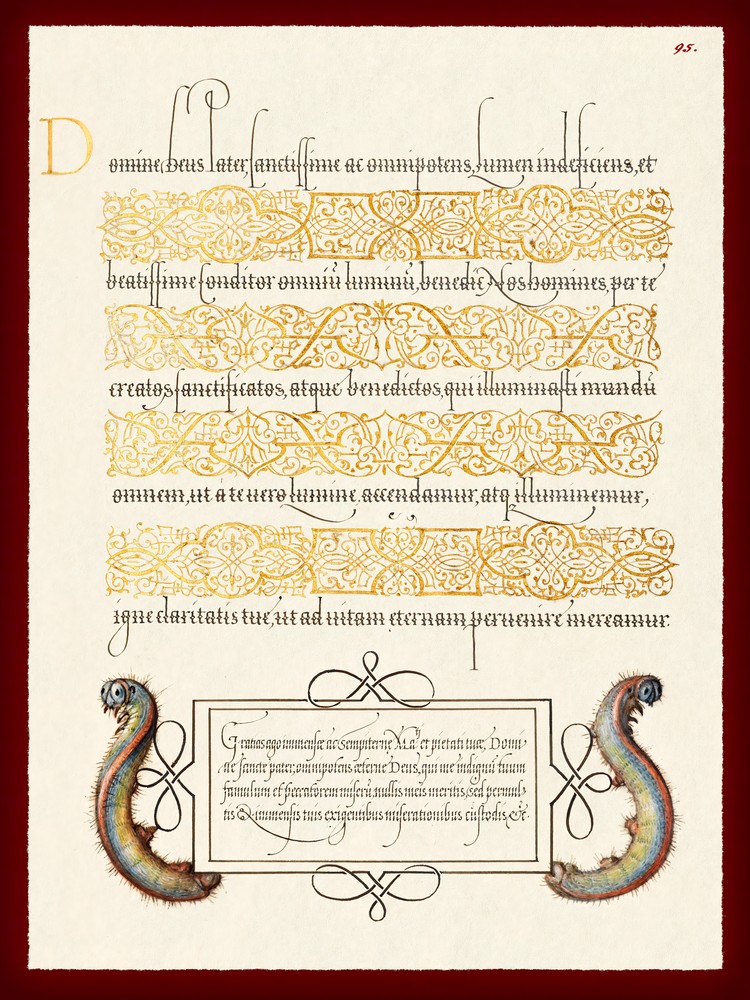 95.
Domine Deus Pater, sanctissime ac omnipotens, Lumen indeficiens, et
beatissime Conditor omniũ luminũ, benedic Nos homines, per te
creatos, sanctificatos, atque benedictos, qui illuminasti mundũ
omnem, ut á te uero lumine accendamur, atq illuminemur,
igne claritatis tuę, ut ad uitam ęternam peruenire mereamur.
Gratias ago immensæ ac Sempiternę Ma.ti et pietati tuæ, Domi-
ne sancte pater, omnipotens æterne Deus, qui me indignũ tuum
famulum et peccatorem miserũ, nullis meis meritis, sed permul-
tis Q immensis tuis exigentibus miserationibus custodis, &c.